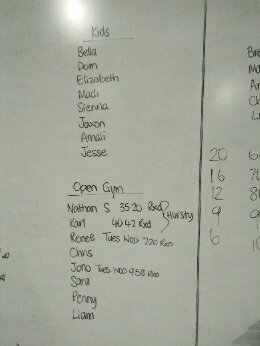 Kids
Bella
Dom
Elizabeth
Madi
Sienna
Jaxon
Amali
Jesse
Open Gym
Nathan S 35:20 Rxd
Karl 40:42 Rxd
Hursty
Renee Tues WOD 7:20 Rxd
Chris
Jono Tues WOD 9:58 Rxd
Sara
Penny
Liam
20
16
12
9
6